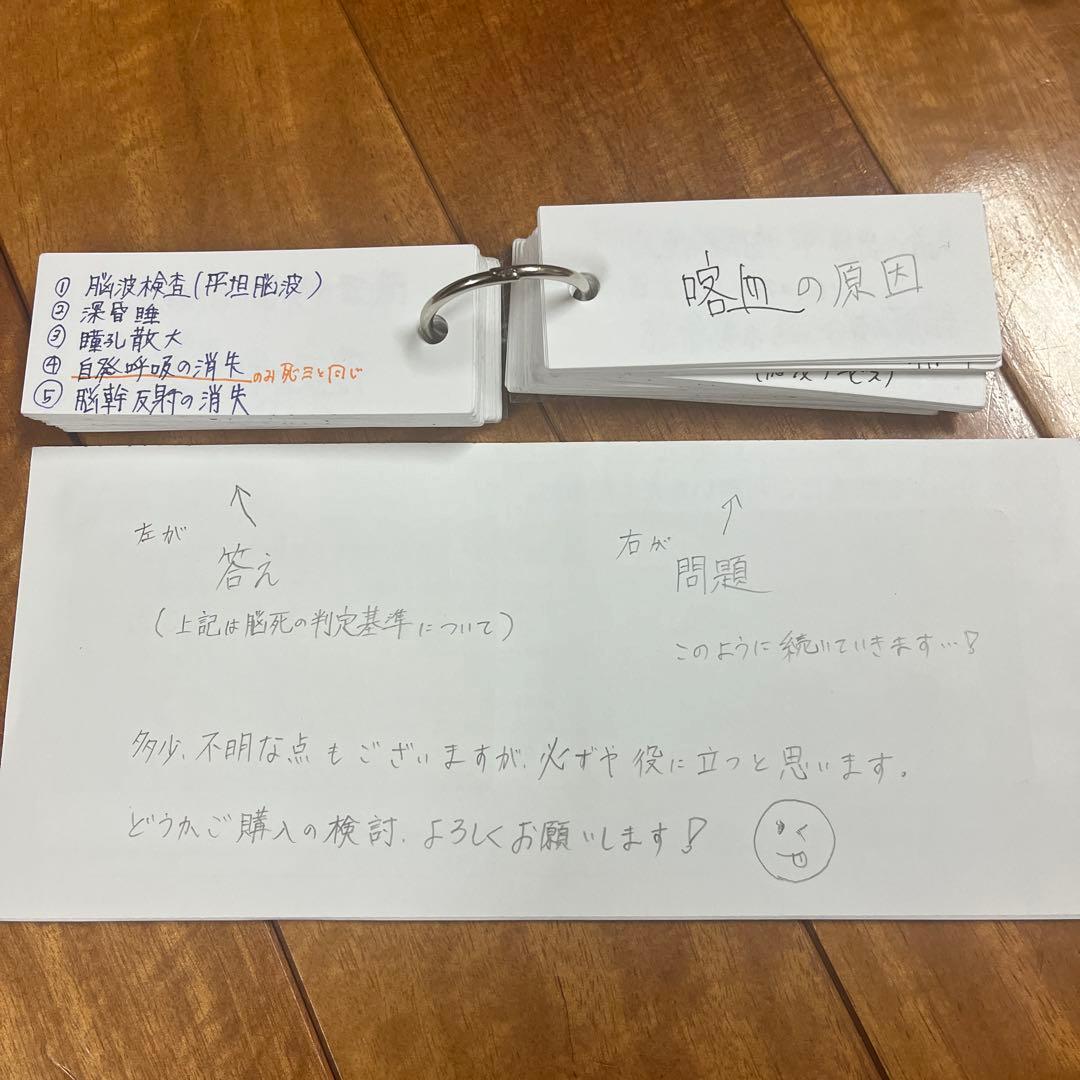 ① 脳波検査(平坦脳波)
② 深昏睡
③ 瞳孔散大
④ 自発呼吸の消失 のみ死三と同じ
⑤ 脳幹反射の消失
喀血の原因
左が
答え
(上記は脳死の判定基準について)
右が
問題
このように続いていきます…!
多少、不明な点もございますが、必ずや役に立つと思います。
どうかご購入の検討、よろしくお願いします!